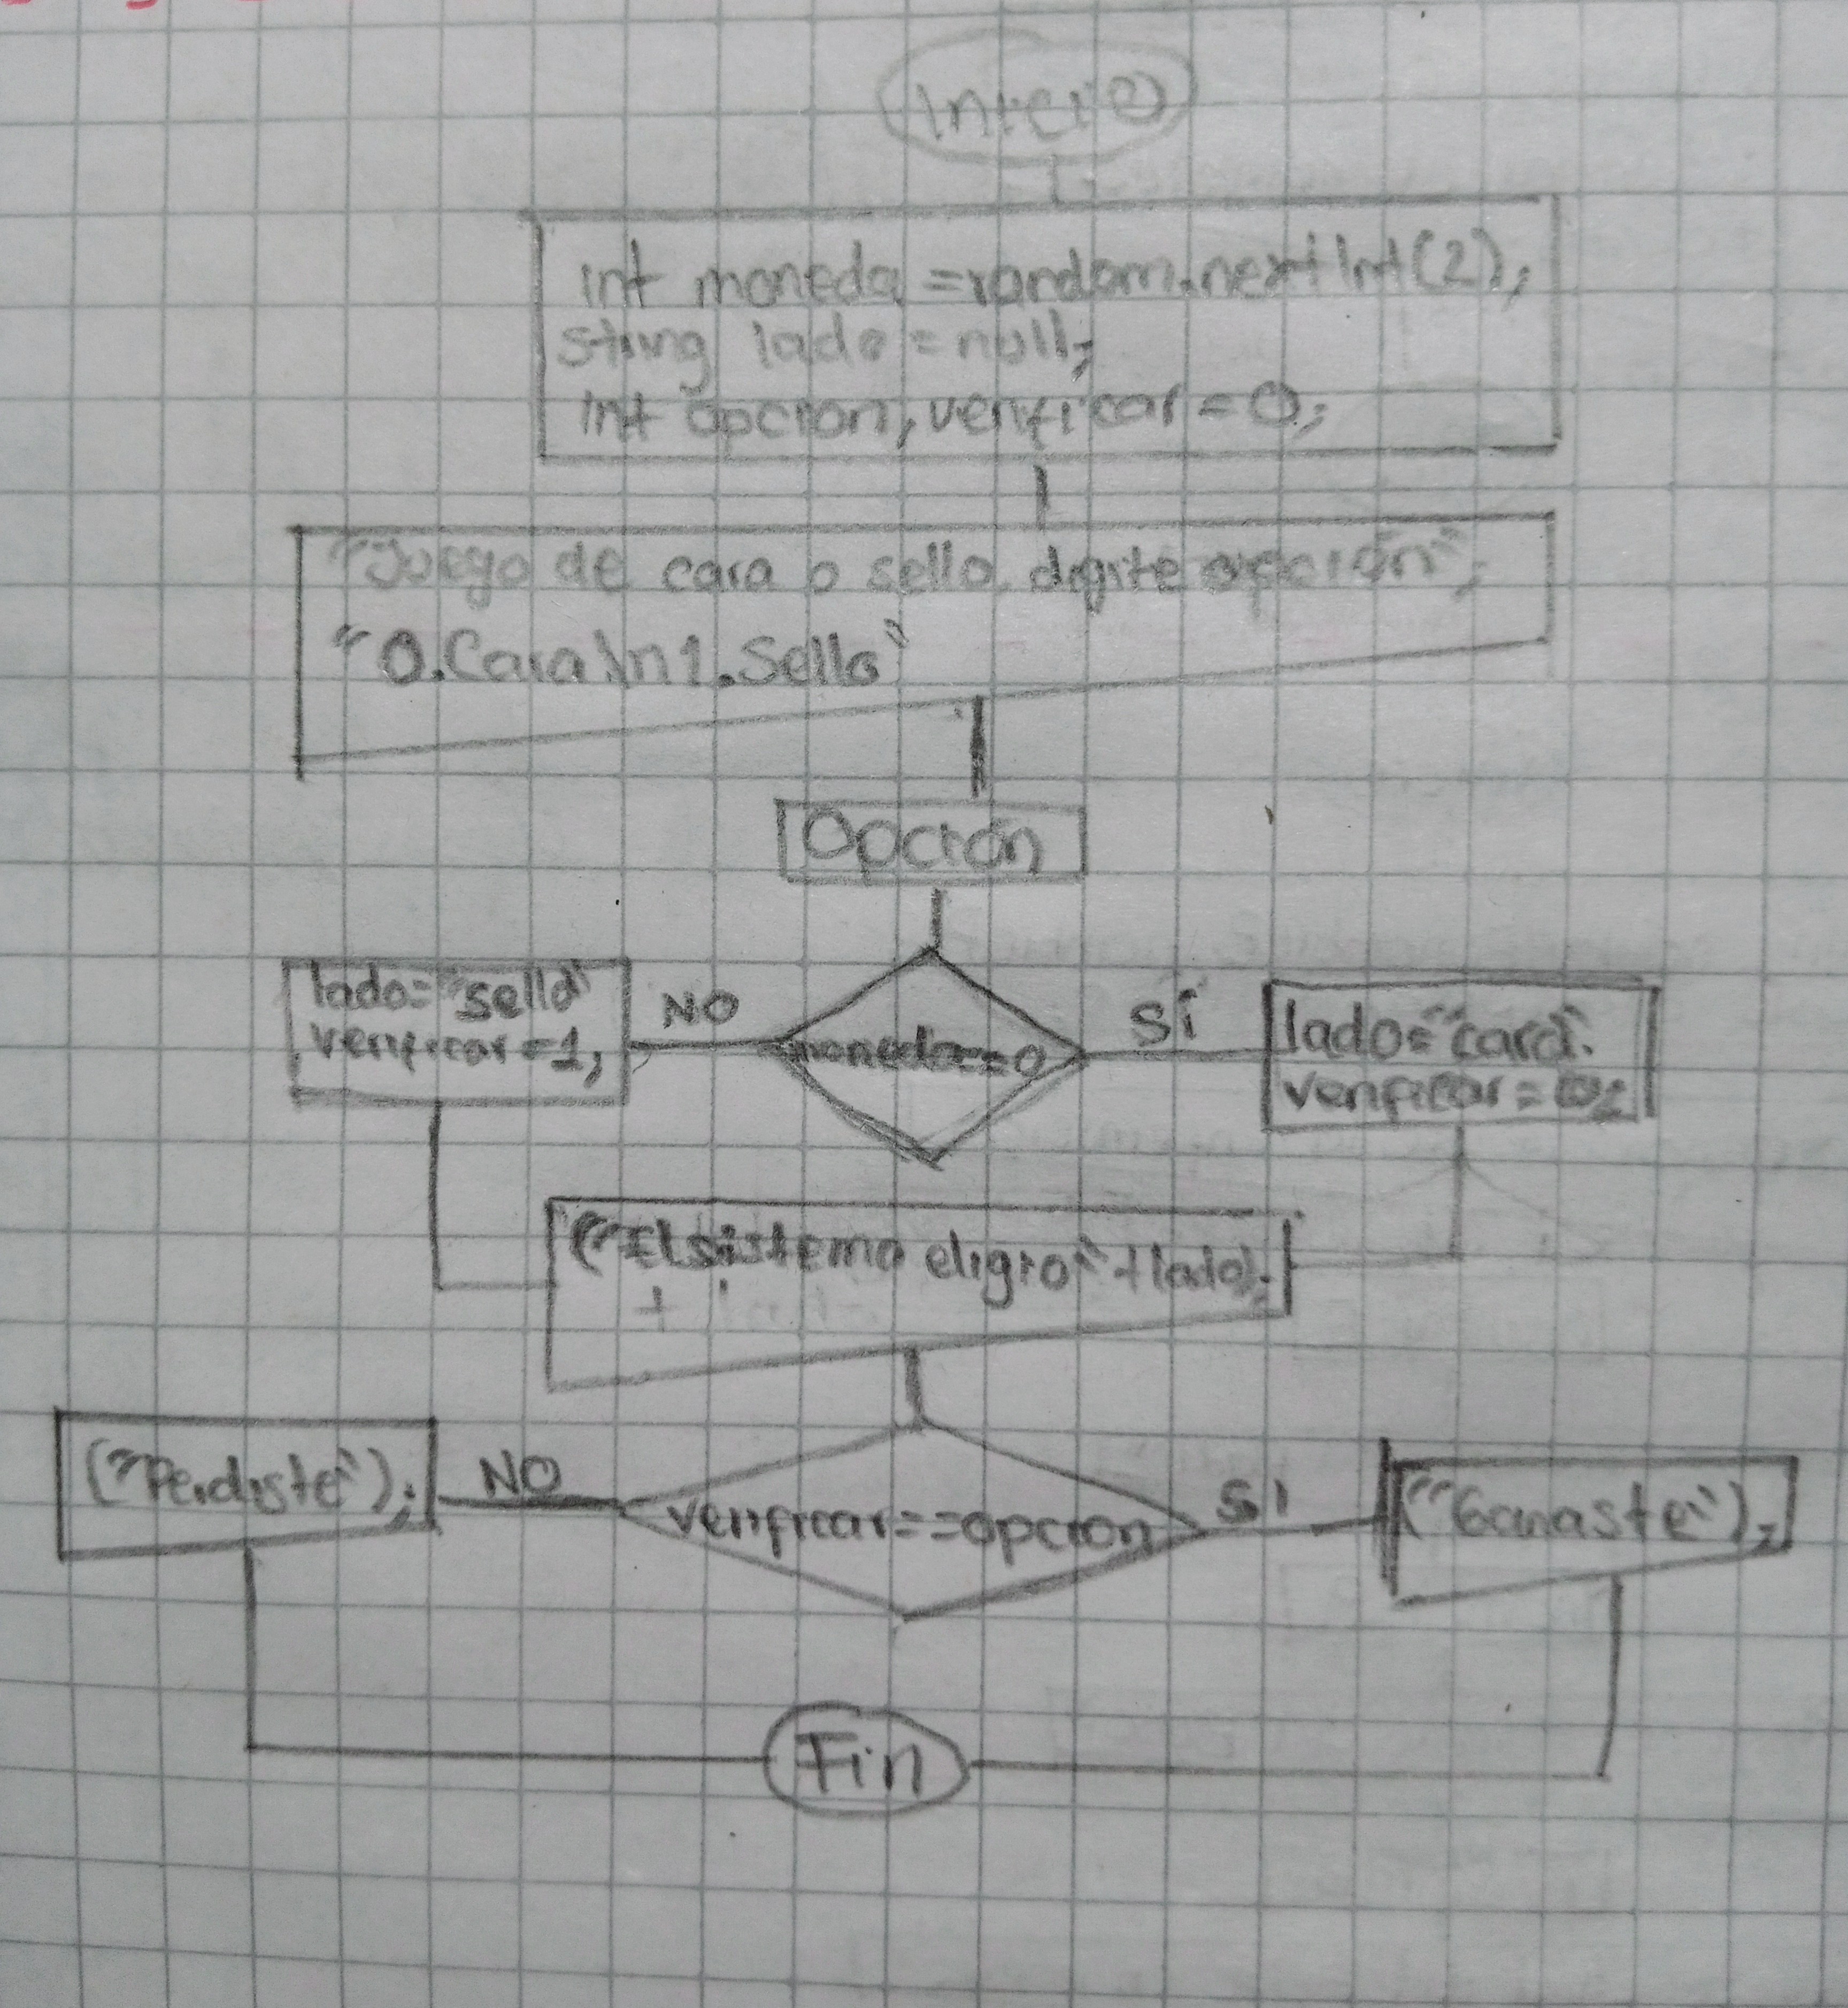 Inicio
int moneda =random.nextInt(2);
string lado = null;
int opcion, verificar = 0;
"Juego de cara o sello, digite opción";
"0.Cara\n1.Sello"
Opción
moneda==0
NO
SÍ
lado="sello"
verificar=1;
lado="cara".
verificar=0;
("El sistema eligio"+lado);
verificar==opcion
NO
SI
("Perdiste");
("Ganaste");
Fin